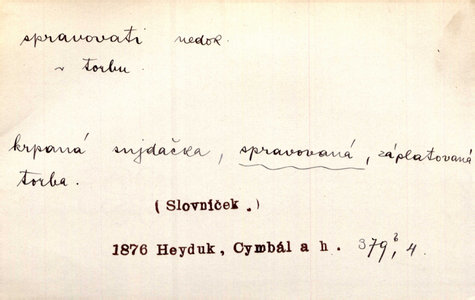 spravovati nedok.
~ torbu.
krpaná snjdačka, spravovaná, záplatovaná
torba.
(Slovníček.)
1876 Heyduk, Cymbál a h. 379, 4.